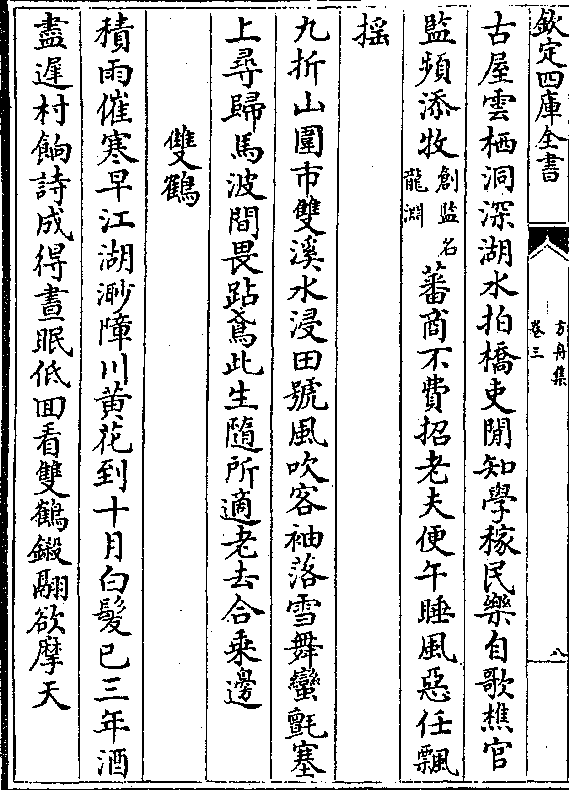 欽定四庫全書
方舟集
卷三
八
古屋雲栖洞深湖水拍橋吏閒知學稼民樂自歌樵官
監頻添牧創監名龍淵蕃商不費招老夫便午睡風惡任飄
揺
九折山圍市雙溪水浸田號風吹客袖落雪舞蠻氈塞
上尋歸馬波間畏跕鳶此生隨所適老去合乗邊
雙鶴
積雨催寒早江湖渺障川黄花到十月白髪已三年酒
盡遲村餉詩成得晝眠低回看雙鶴鎩翮欲摩天